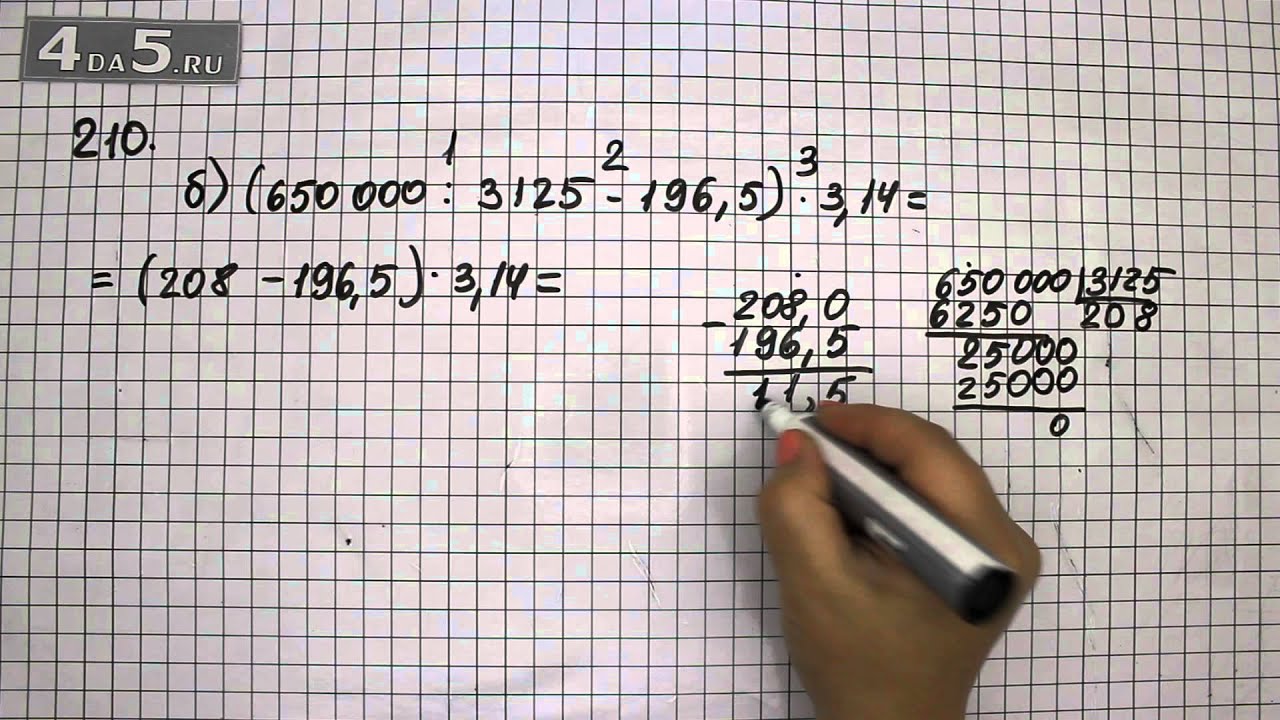 4DA5.RU
210.
1 2 3
б) (650 000 : 3125 - 196,5) · 3,14 =
= (208 - 196,5) · 3,14 =
208,0
- 196,5
11,5
650 000 | 3125
6250 208
25000
25000
0